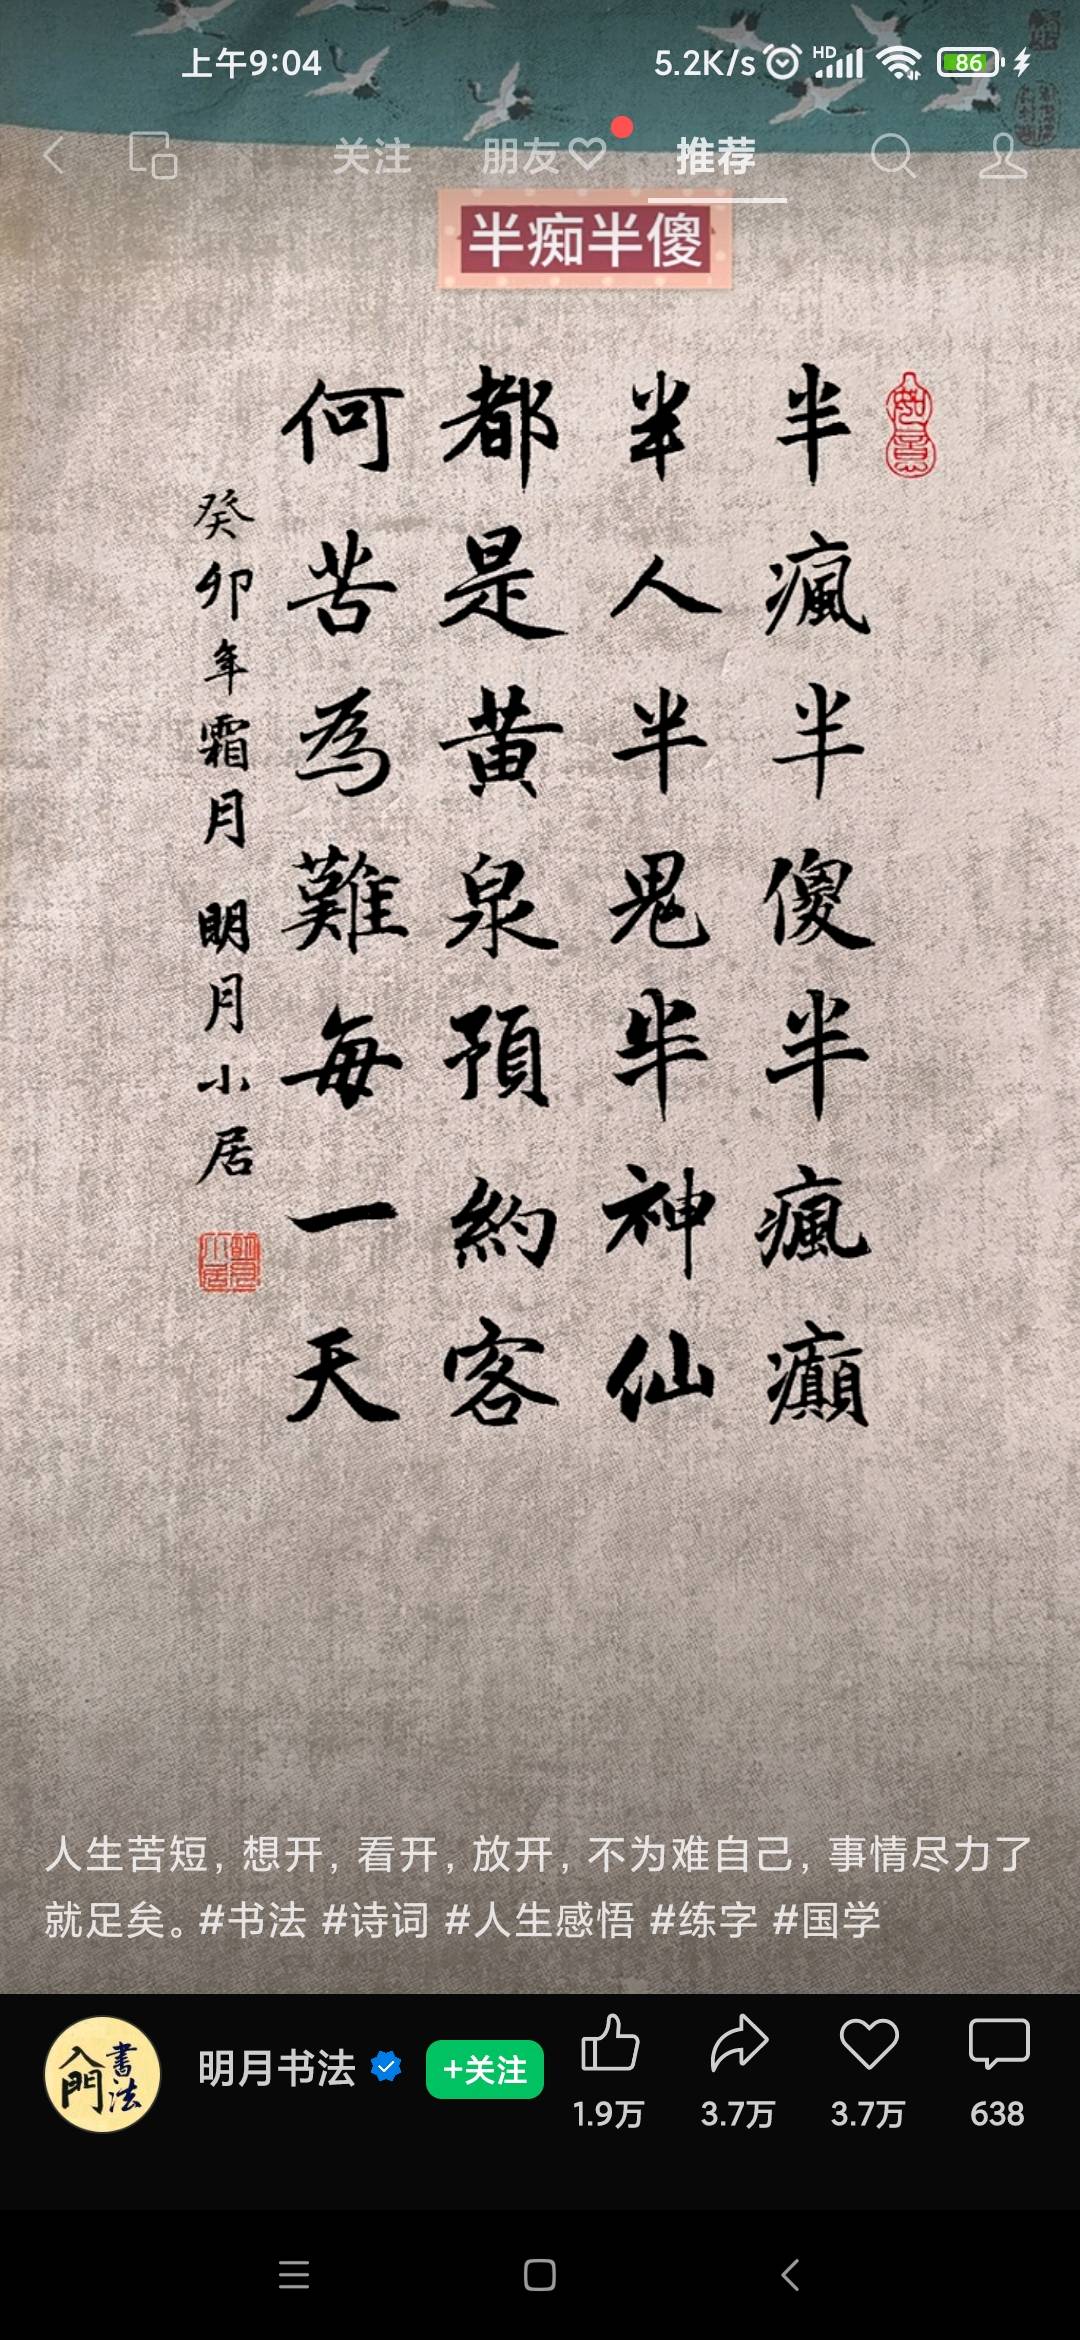 上午9:04
5.2K/s HD 86
关注 朋友 推荐
半痴半傻
如意
半瘋半傻半瘋癲
半人半鬼半神仙
都是黄泉預約客
何苦為難每一天
癸卯年霜月 明月小居
明月小居
人生苦短，想开，看开，放开，不为难自己，事情尽力了
就足矣。#书法 #诗词 #人生感悟 #练字 #国学
書法入門
明月书法 +关注
1.9万 3.7万 3.7万 638